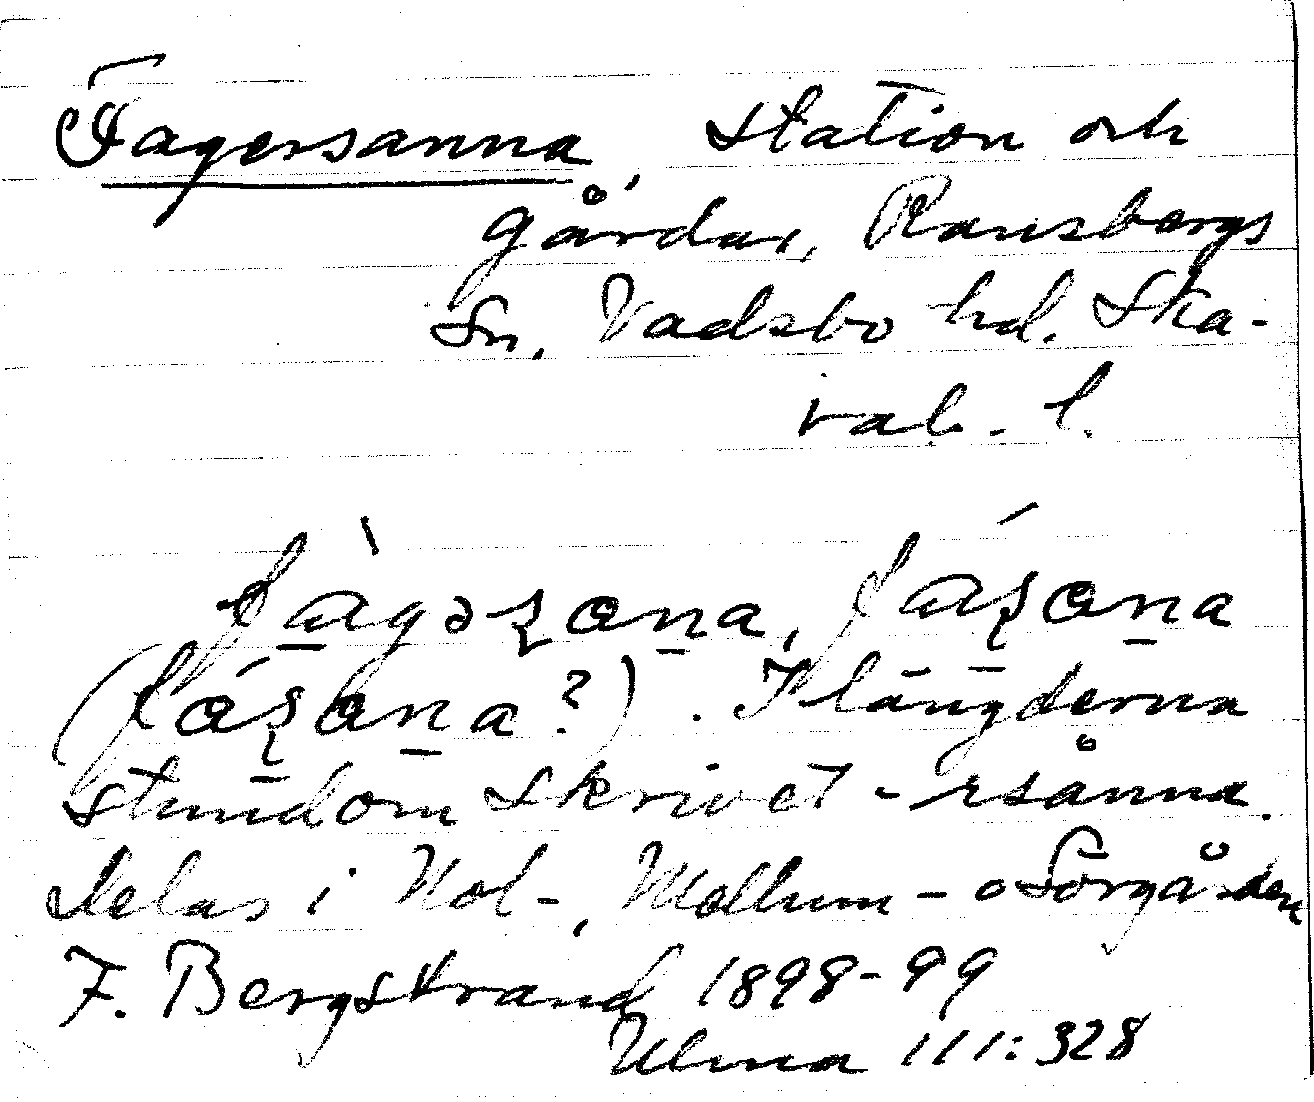 Fagersanna, station och
gårdar, Ransbergs
Sn, Vadsbo hd. Ska-
rab. l.
I längderna
stundom skrivet -rsånna.
Delas i Nol-, Mellum- o Sörgården
F. Bergstrand 1898-99
Ulma 111:328